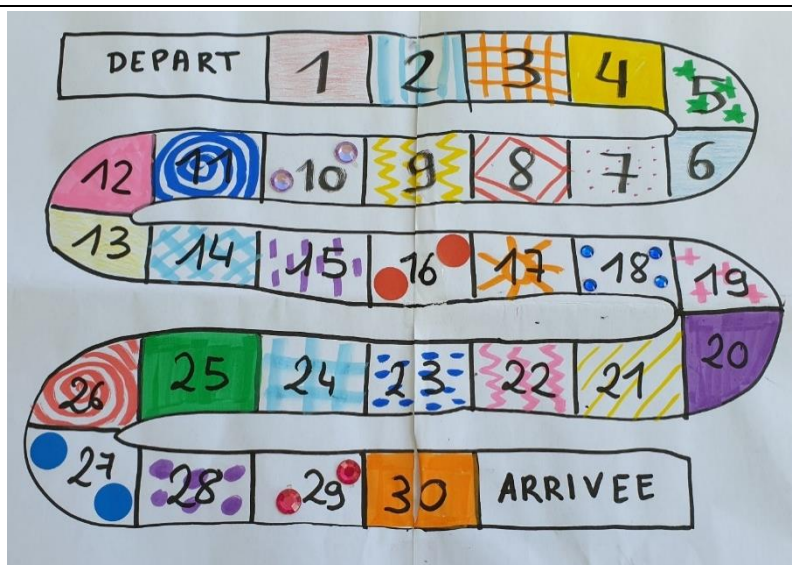 DEPART 1 2 3 4 5
12 11 10 9 8 7 6
13 14 15 16 17 18 19
26 25 24 23 22 21 20
27 28 29 30 ARRIVEE